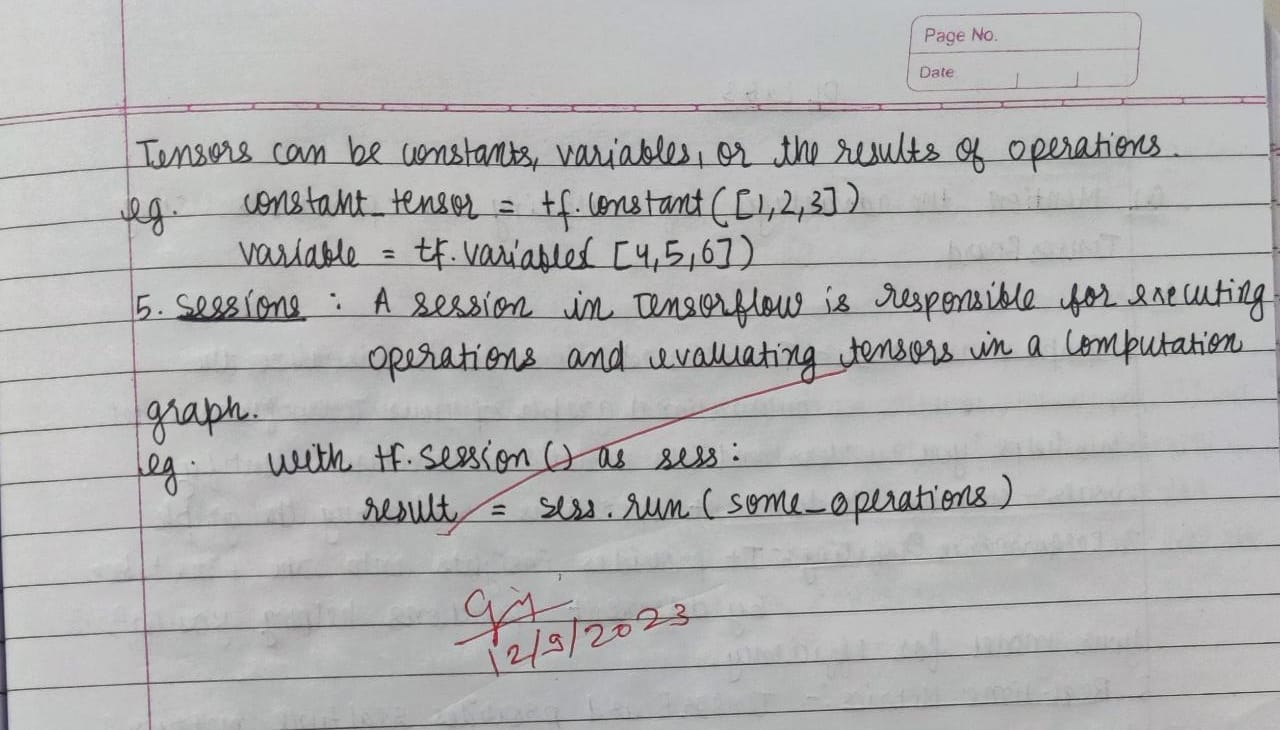 Page No.
Date
Tensors can be constants, variables, or the results of operations.
eg. constant_tensor = tf.constant([1,2,3])
variable = tf.variables [4,5,6])
5. Sessions : A session in Tensorflow is responsible for executing
operations and evaluating tensors in a computation
graph.
eg. with tf.session() as sess:
result = sess.run(some_operations)
12/9/2023